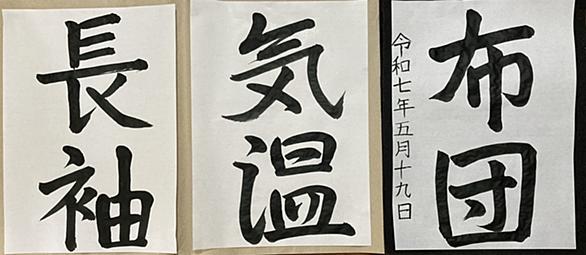 長袖
気温
布団
令和七年五月十九日